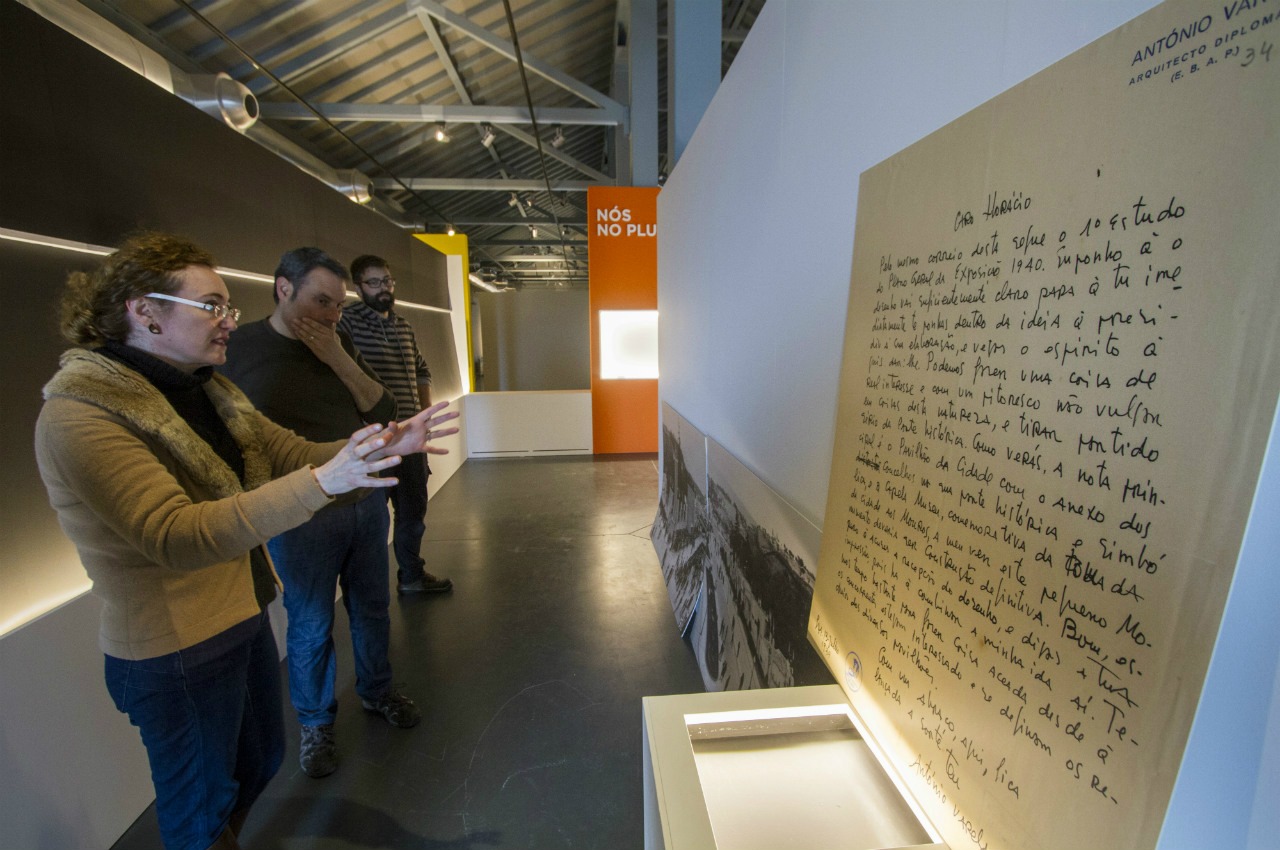 NÓS
NO PLU
ANTÓNIO VAR
ARQUITECTO DIPLOMA
(E. B. A. P.) 34
CARO HORÁCIO
Pelo mesmo correio desta sobre o 1º estudo
do Plano Geral da Exposição 1940. Suponho à o
desenho vai suficientemente claro para à tu ime
diatamente te ponhas dentro da ideia à presi-
diu à sua elaboração, e vejas o espírito à
Podemos fazer uma coisa de
real interesse e com um pitoresco não vulgar
em coisas desta natureza, e tirar partido
da Ponte histórica. Como verás, a nota prin-
cipal é o Pavilhão da Cidade com o anexo dos
concelhos na sua parte histórica e simbó
lica, e a Capela Museu, comemorativa da tomada
da cidade aos Mouros, a meu ver este pequeno Mo-
numento deveria ser construção definitiva. Bom, es-
pero à acuses a recepção do desenho, e digas a tua
impressão, pois há à combinar a minha ida aí. Te-
mos tempo bastante para fazer coisa acertada desde à
os concorrentes estejam interessados e se definam os re-
dos diversos pavilhões.
Com um abraço, aqui, fica
António Varel